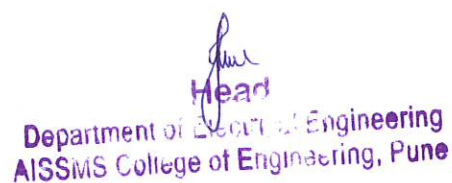 Head
Department of Electrical Engineering
AISSMS College of Engineering, Pune